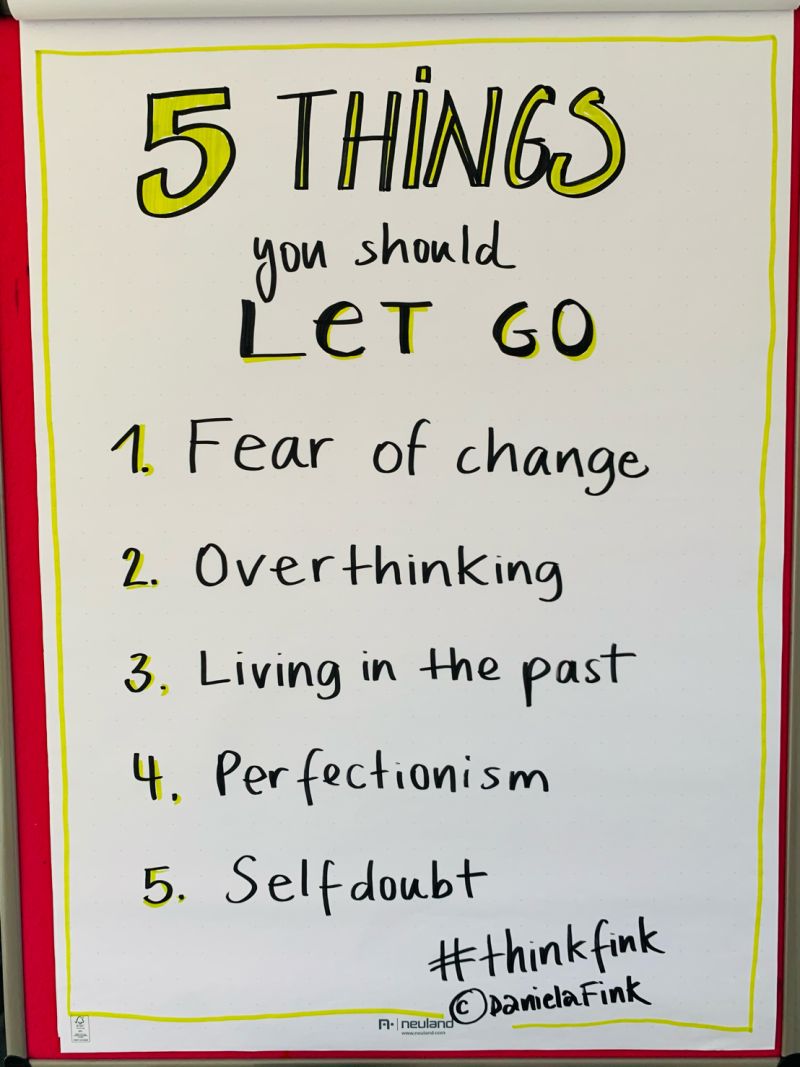 5 THiNGS
you should
LeT GO
1. Fear of change
2. Overthinking
3. Living in the past
4. Perfectionism
5. Selfdoubt
#thinkfink
© DanielaFink
neuland
www.neuland.com